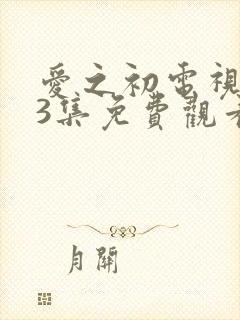 愛之初電視
3集免費觀看
月關